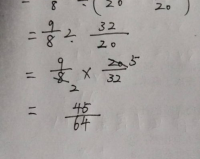 = 9/8 ÷ 32/20
= 9/8 2 × 20 5/32
= 45/64